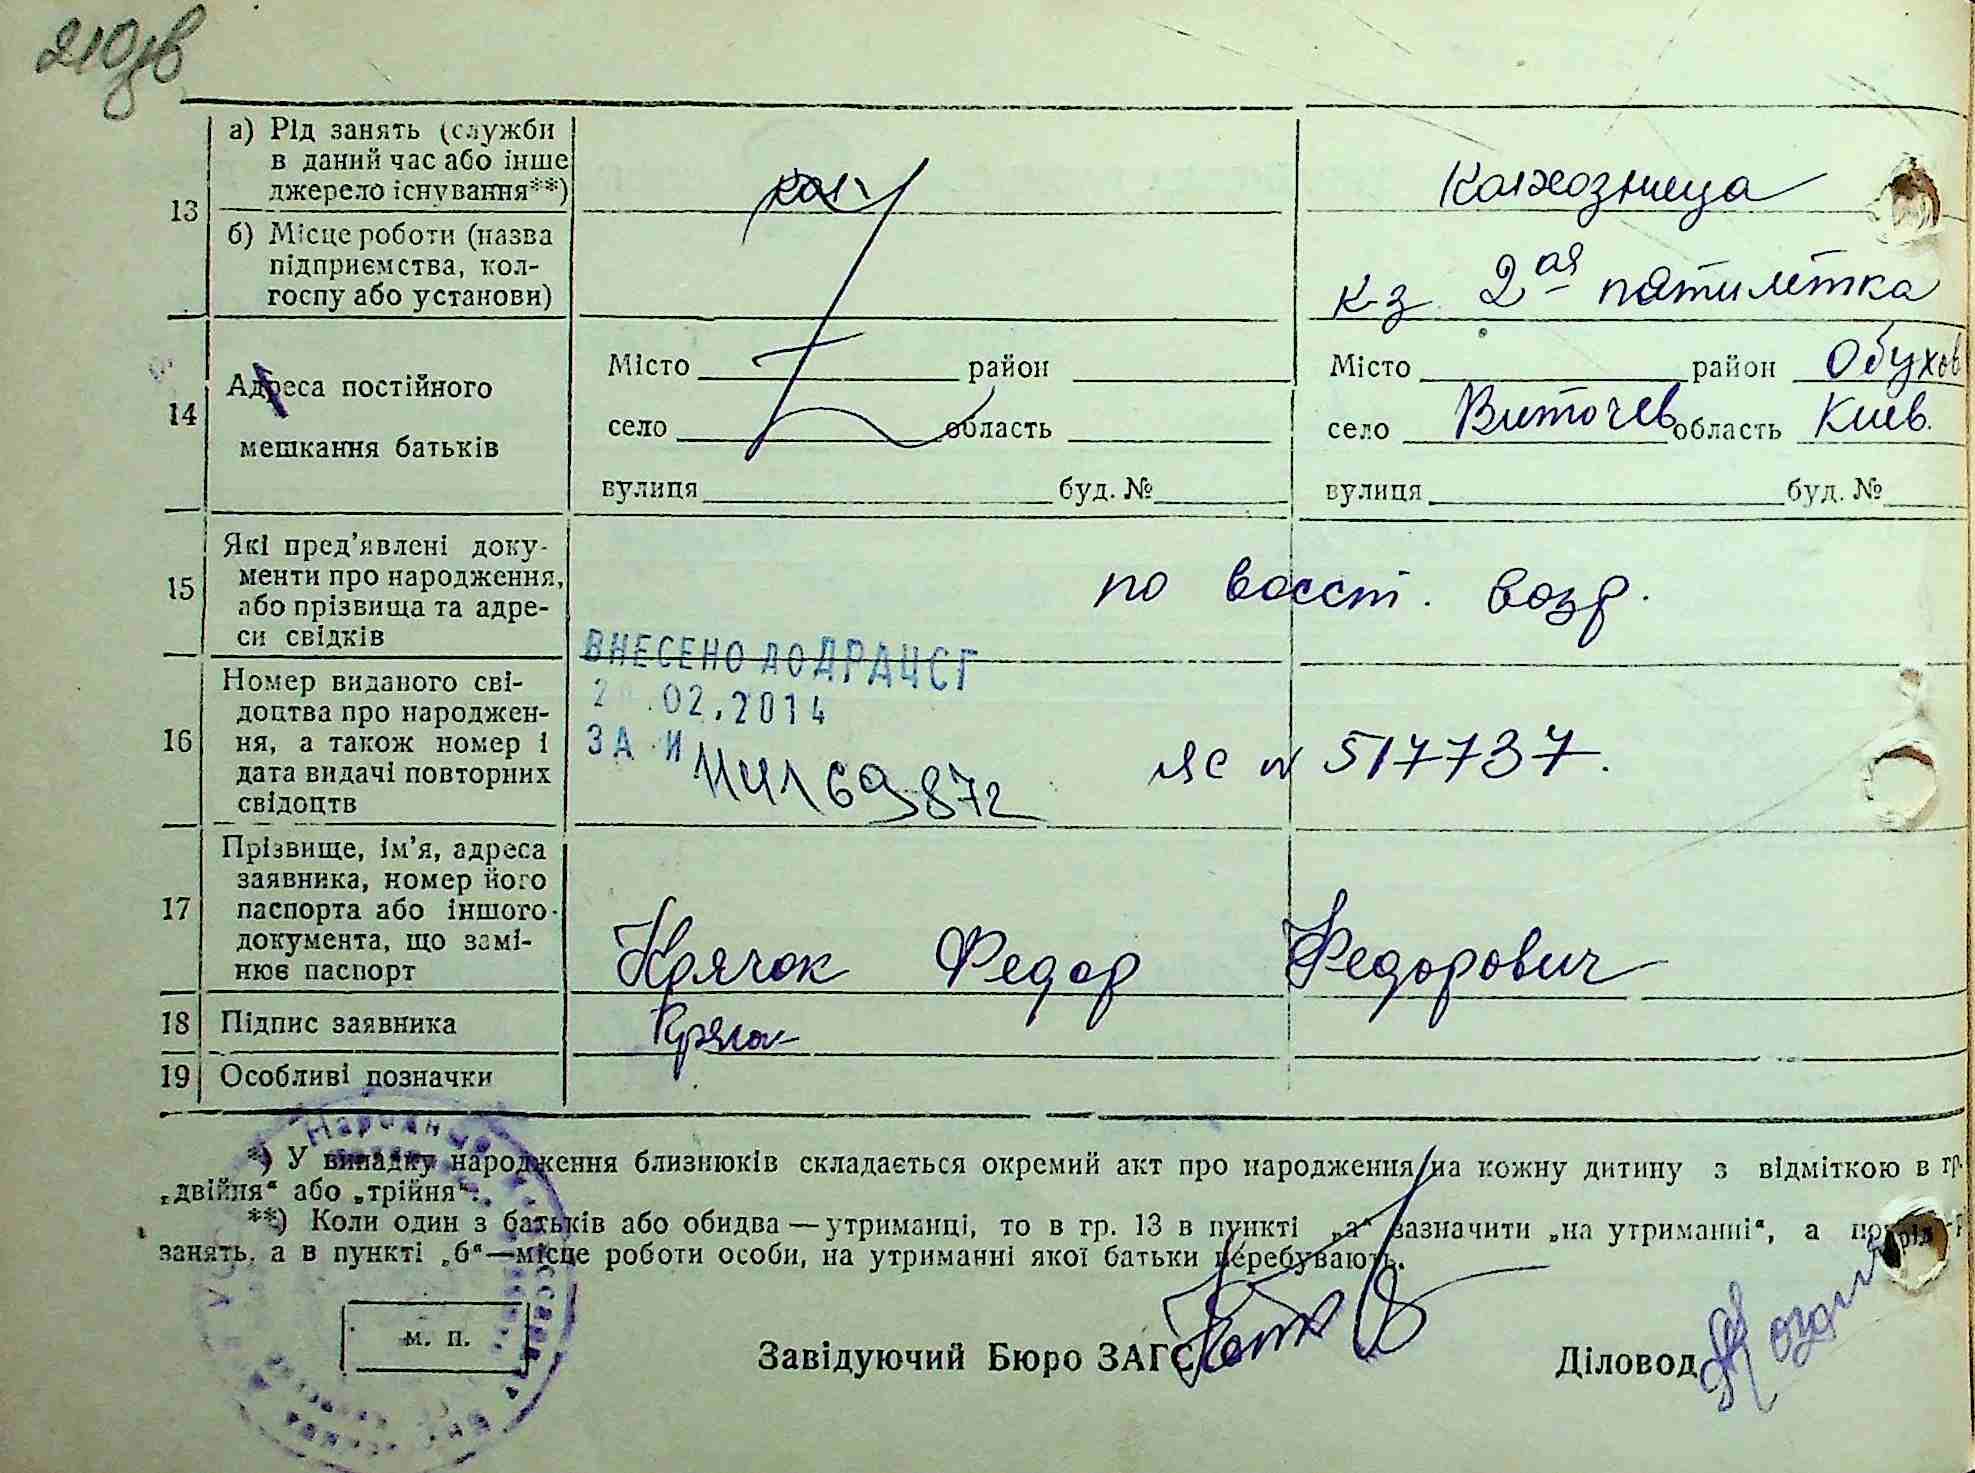 210зв
13
а) Рід занять (служби
в даний час або інше
джерело існування**)
Колхозница
б) Місце роботи (назва
підприємства, кол-
госпу або установи)
к-з 2ая пятилетка
14
Адреса постійного
мешкання батьків
Місто район
село область
вулиця буд. №
Місто район Обухов
село Витачев область Киев.
вулиця буд. №
15
Які пред'явлені доку-
менти про народження,
або прізвища та адре-
си свідків
по восст. возр.
16
Номер виданого сві-
доцтва про народжен-
ня, а також номер і
дата видачі повторних
свідоцтв
ВНЕСЕНО ДО ДРАЦСГ
.02.2014
ЗА
ЯС N 517737.
17
Прізвище, ім'я, адреса
заявника, номер його
паспорта або іншого
документа, що замі-
нює паспорт
Крячок Федор Федорович
18
Підпис заявника
19
Особливі позначки
*) У випадку народження близнюків складається окремий акт про народження на кожну дитину з відміткою в гр.
„двійня“ або „трійня“.
**) Коли один з батьків або обидва — утриманці, то в гр. 13 в пункті „а“ зазначити „на утриманні“, а
занять, а в пункті „б“—місце роботи особи, на утриманні якої батьки перебувають.
м. п.
Завідуючий Бюро ЗАГС
Діловод